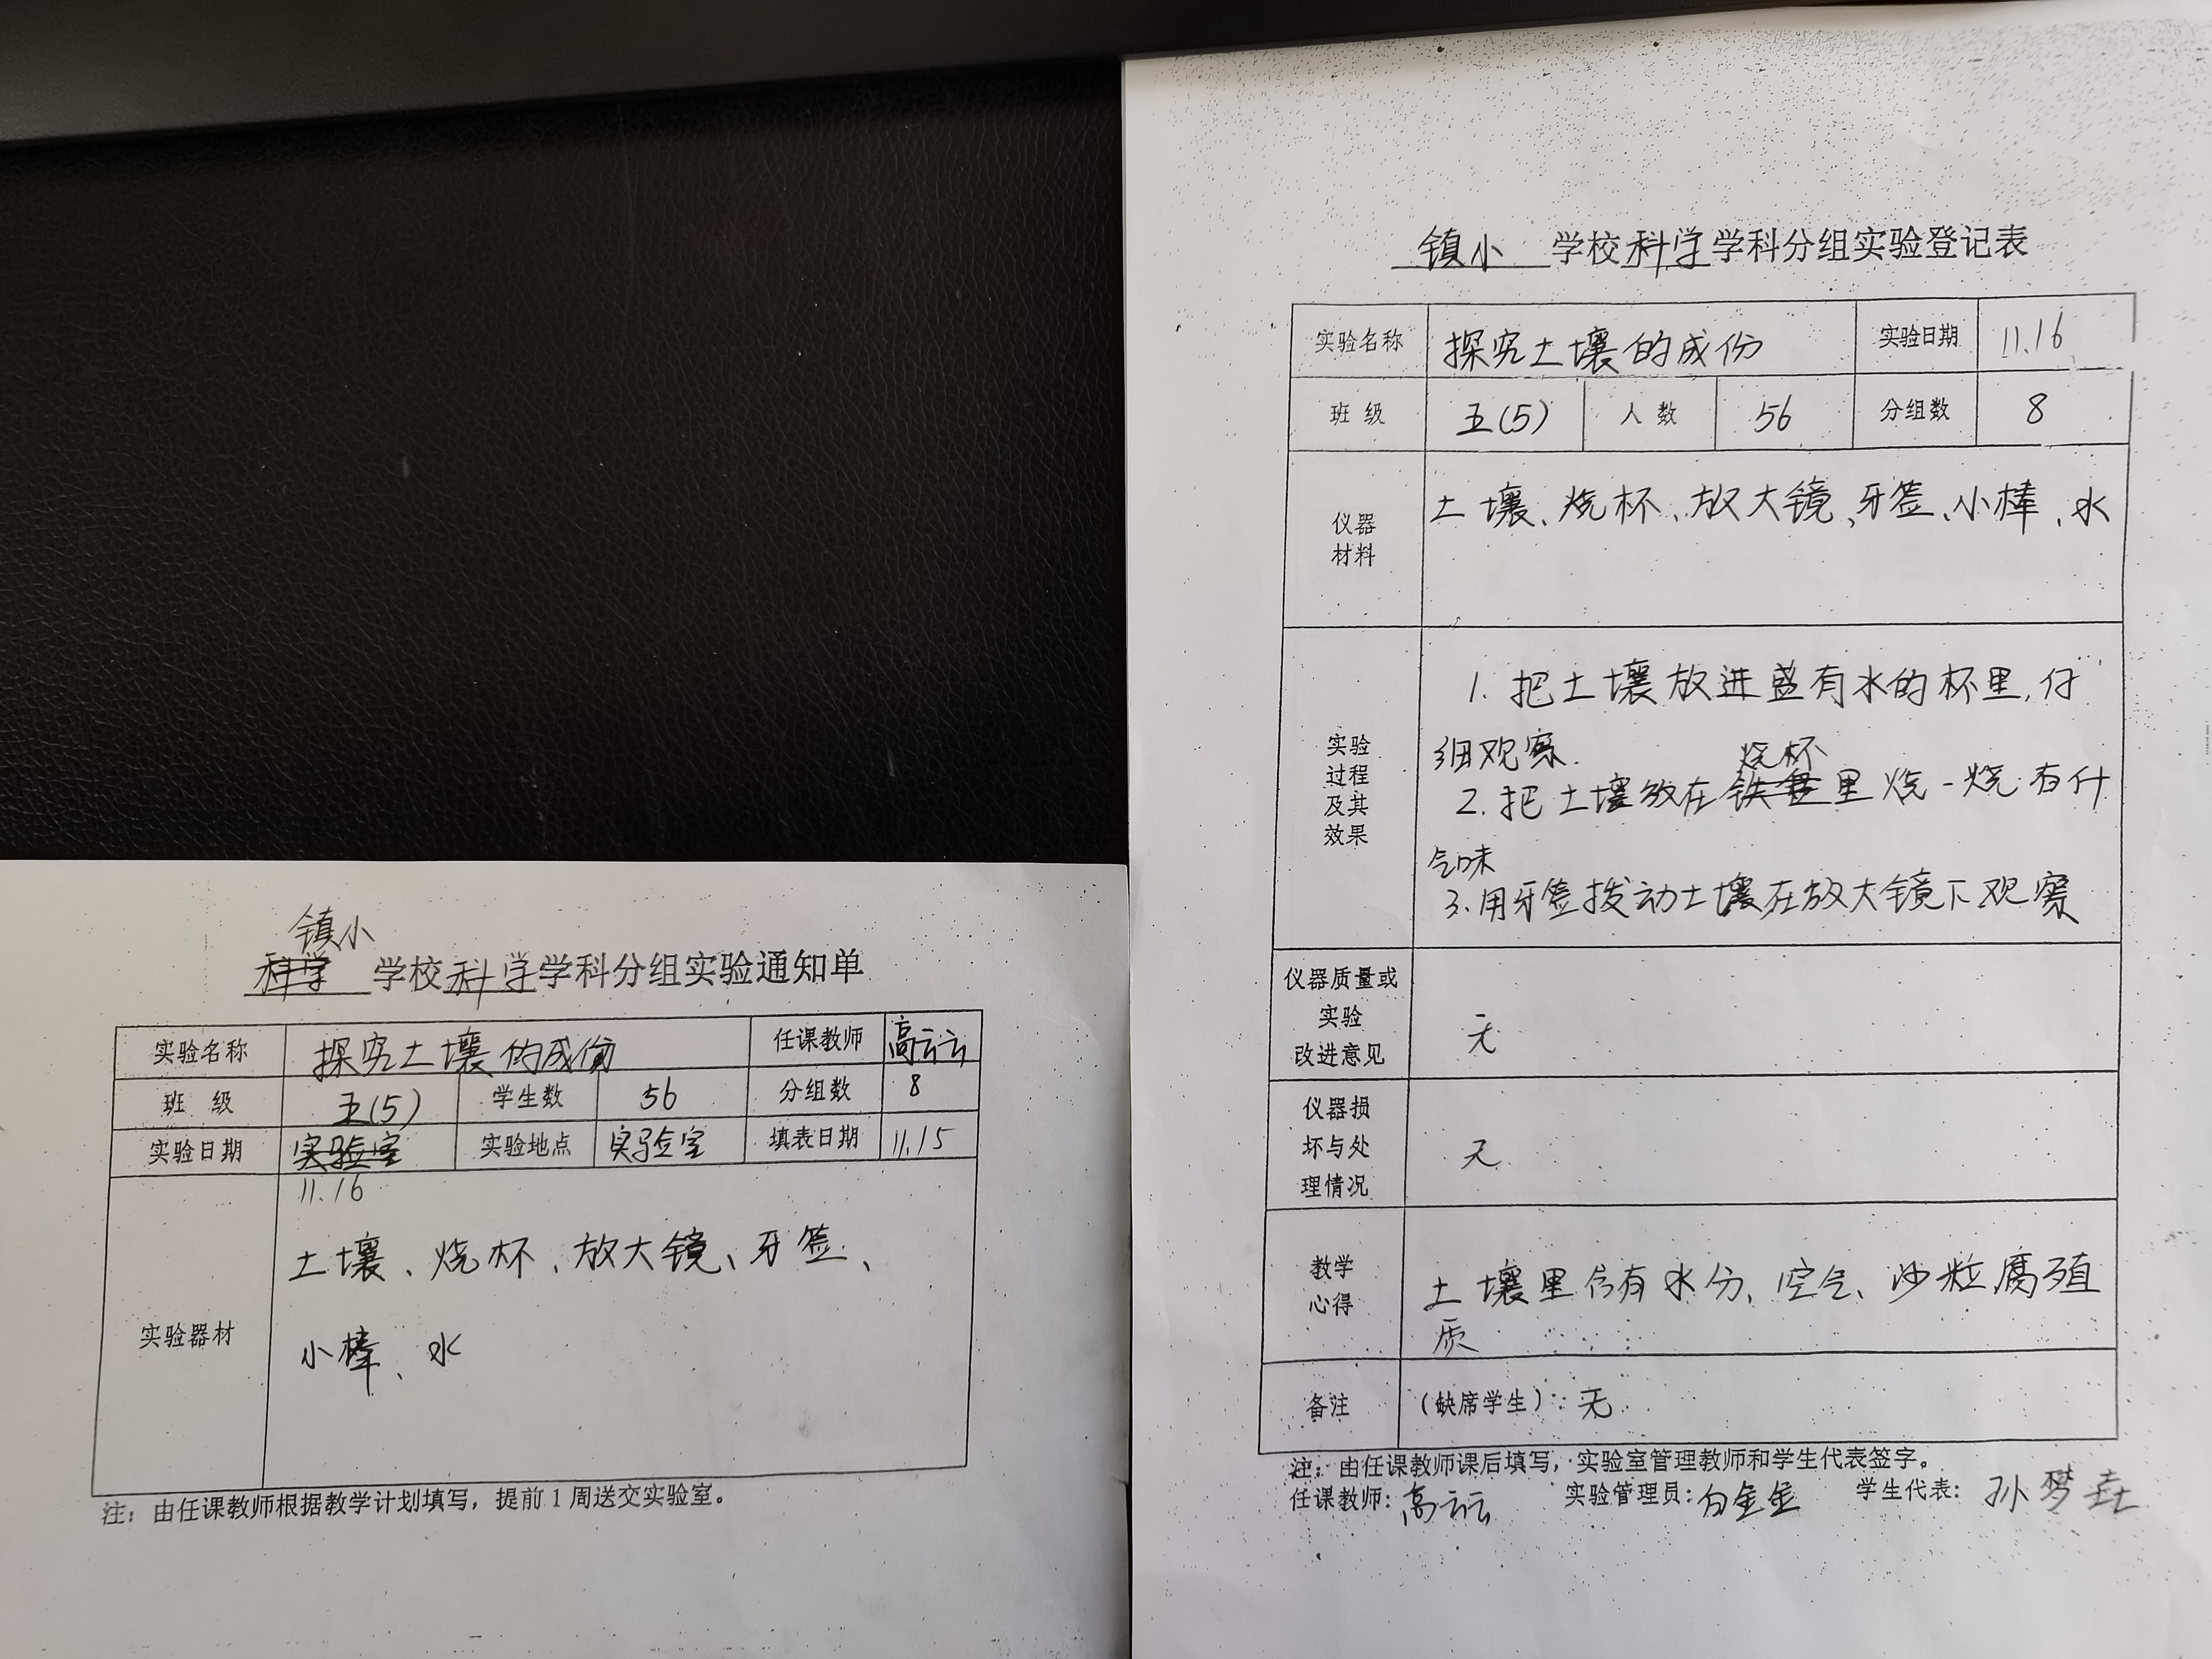 镇小
科学 学校科学学科分组实验通知单
实验名称 探究土壤的成份 任课教师 高云云
班 级 五(5) 学生数 56 分组数 8
实验日期 实验室 实验地点 实验室 填表日期 11.15
11.16
实验器材
土壤、烧杯、放大镜、牙签、
小棒、水
注：由任课教师根据教学计划填写，提前1周送交实验室。
镇小 学校科学学科分组实验登记表
实验名称 探究土壤的成份 实验日期 11.16
班 级 五(5) 人 数 56 分组数 8
仪器
材料
土壤、烧杯、放大镜、牙签、小棒、水
实验
过程
及其
效果
1. 把土壤放进盛有水的杯里,仔
细观察.
烧杯
2. 把土壤放在铁盒里烧一烧有什
气味
3.用牙签拨动土壤在放大镜下观察
仪器质量或
实验
改进意见
无
仪器损
坏与处
理情况
无
教学
心得
土壤里含有水分、空气、沙粒腐殖
质
备注 （缺席学生）：无
注：由任课教师课后填写，实验室管理教师和学生代表签字。
任课教师：高云云 实验管理员：白金金 学生代表：孙梦